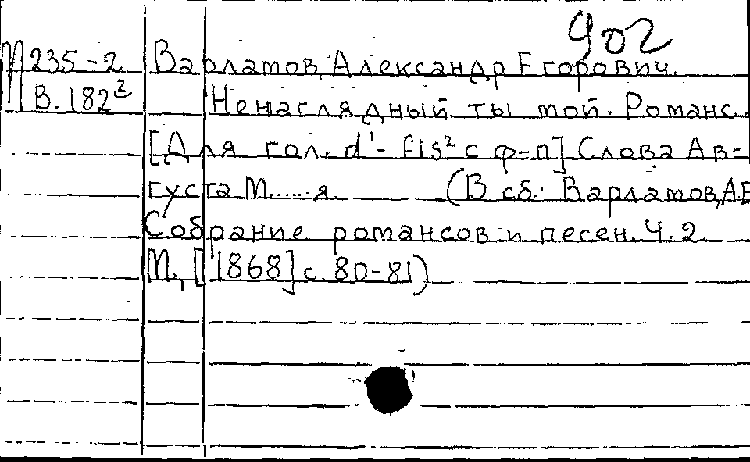 902
М 235-2 Варламов, Александр Егорович.
В.182² Ненаглядный ты мой. Романс.
[Для гол. d¹- fis² с ф-п] Слова Ав-
густа М.....я. (В сб.: Варламов, А.Е
Собрание романсов и песен. Ч. 2.
М., [1868] с. 80-81)